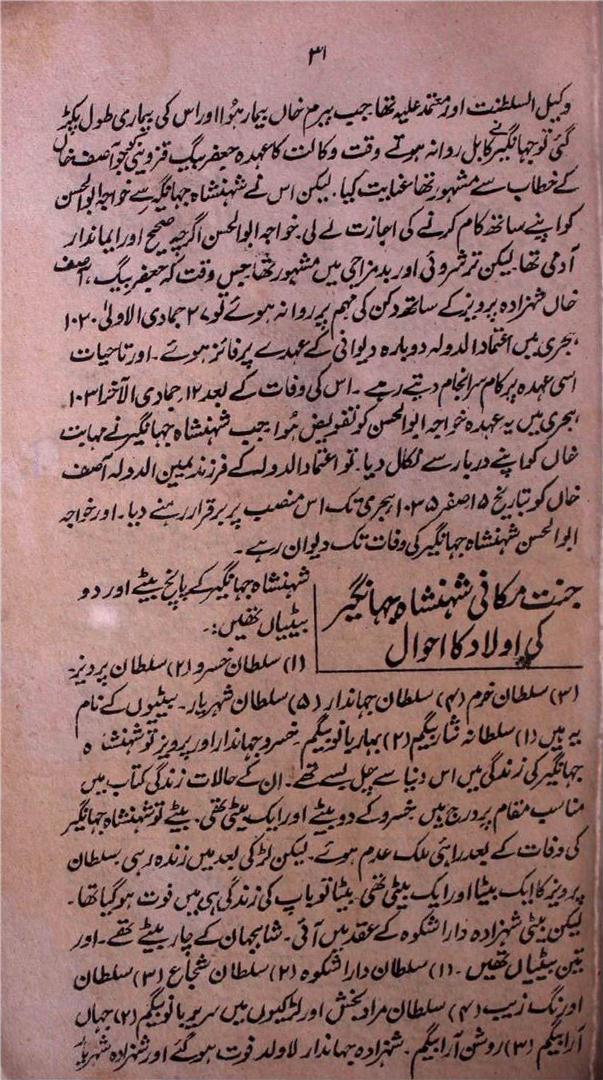 ۳۱
وکیل السلطنت اور معتمد علیہ تھا جب پیرم خاں بیمار ہُوا اور اس کی بیماری طول پکڑ
گئی تو جہانگیر نے کابل روانہ ہوتے وقت وکالت کا عہدہ جعفر بیگ قزوینی کو جو آصف خاں
کے خطاب سے مشہور تھا عنایت کیا۔ لیکن اس نے شہنشاہ جہانگیر سے خواجہ ابوالحسن
کو اپنے ساتھ کام کرنے کی اجازت لے لی۔ خواجہ ابوالحسن اگرچہ صحیح اور ایماندار
آدمی تھا۔ لیکن ترشروئی اور بدمزاجی میں مشہور تھا جس وقت کہ جعفر بیگ، آصف
خاں شہزادہ پرویز کے ساتھ دکن کی مہم پر روانہ ہوئے تو ۲۷ جمادی الاولیٰ ۱۰۲۰
ہجری میں اعتماد الدولہ دوبارہ دیوانی کے عہدے پر فائز ہوئے۔ اور تاحیات
اسی عہدہ پر کام سرانجام دیتے رہے۔ اس کی وفات کے بعد ۱۲ جمادی الآخر ۱۰۳۱
ہجری میں یہ عہدہ خواجہ ابوالحسن کو تفویض ہُوا۔ جب شہنشاہ جہانگیر نے مہابت
خاں کو اپنے دربار سے نکال دیا۔ تو اعتماد الدولہ کے فرزند یمین الدولہ آصف
خاں کو بتاریخ ۱۵ صفر ۱۰۳۵ ہجری تک اس منصب پر برقرار رہنے دیا۔ اور خواجہ
ابوالحسن شہنشاہ جہانگیر کی وفات تک دیوان رہے۔
جنت مکانی شہنشاہ جہانگیر
کی اولاد کا احوال
شہنشاہ جہانگیر کے پانچ بیٹے اور دو
بیٹیاں تھیں:۔
(۱) سلطان خسرو (۲) سلطان پرویز۔
(۳) سلطان خرم (۴) سلطان جہاندار (۵) سلطان شہریار۔ بیٹیوں کے نام
یہ ہیں (۱) سلطانہ نثار بیگم (۲) بہار بانو بیگم۔ خسرو جہاندار اور پرویز تو شہنشاہ
جہانگیر کی زندگی میں اس دنیا سے چل بسے تھے۔ ان کے حالات زندگی کتاب میں
مناسب مقام پر درج ہیں۔ خسرو کے دو بیٹے اور ایک بیٹی تھی۔ بیٹے تو شہنشاہ جہانگیر
کی وفات کے بعد راہئی ملک عدم ہوئے۔ لیکن لڑکی بعد میں زندہ رہی۔ سلطان
پرویز کا ایک بیٹا اور ایک بیٹی تھی۔ بیٹا تو باپ کی زندگی ہی میں فوت ہو گیا تھا۔
لیکن بیٹی شہزادہ داراشکوہ کے عقد میں آئی۔ شاہجہان کے چار بیٹے تھے۔ اور
تین بیٹیاں تھیں۔ (۱) سلطان داراشکوہ (۲) سلطان شجاع (۳) سلطان
اورنگ زیب (۴) سلطان مراد بخش اور لڑکیوں میں بانو بیگم (۲) جہاں
آرا بیگم (۳) روشن آرا بیگم۔ شہزادہ جہاندار لاولد فوت ہو گئے اور شہزادہ شہریار